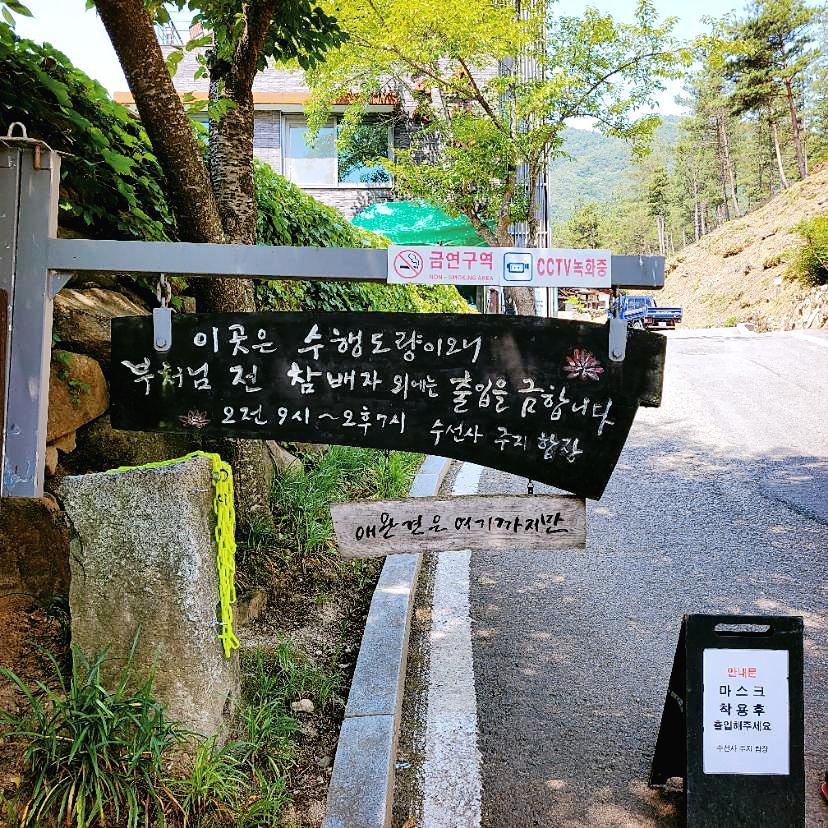 금연구역
NON - SMOKING AREA
CCTV녹화중
이곳은 수행도량이오니
부처님 전 참배자 외에는 출입을 금합니다
오전 9시~오후7시 수선사 주지 합장
애완견은 여기까지만
안내문
마스크
착용후
출입해주세요
수선사 주지 합장